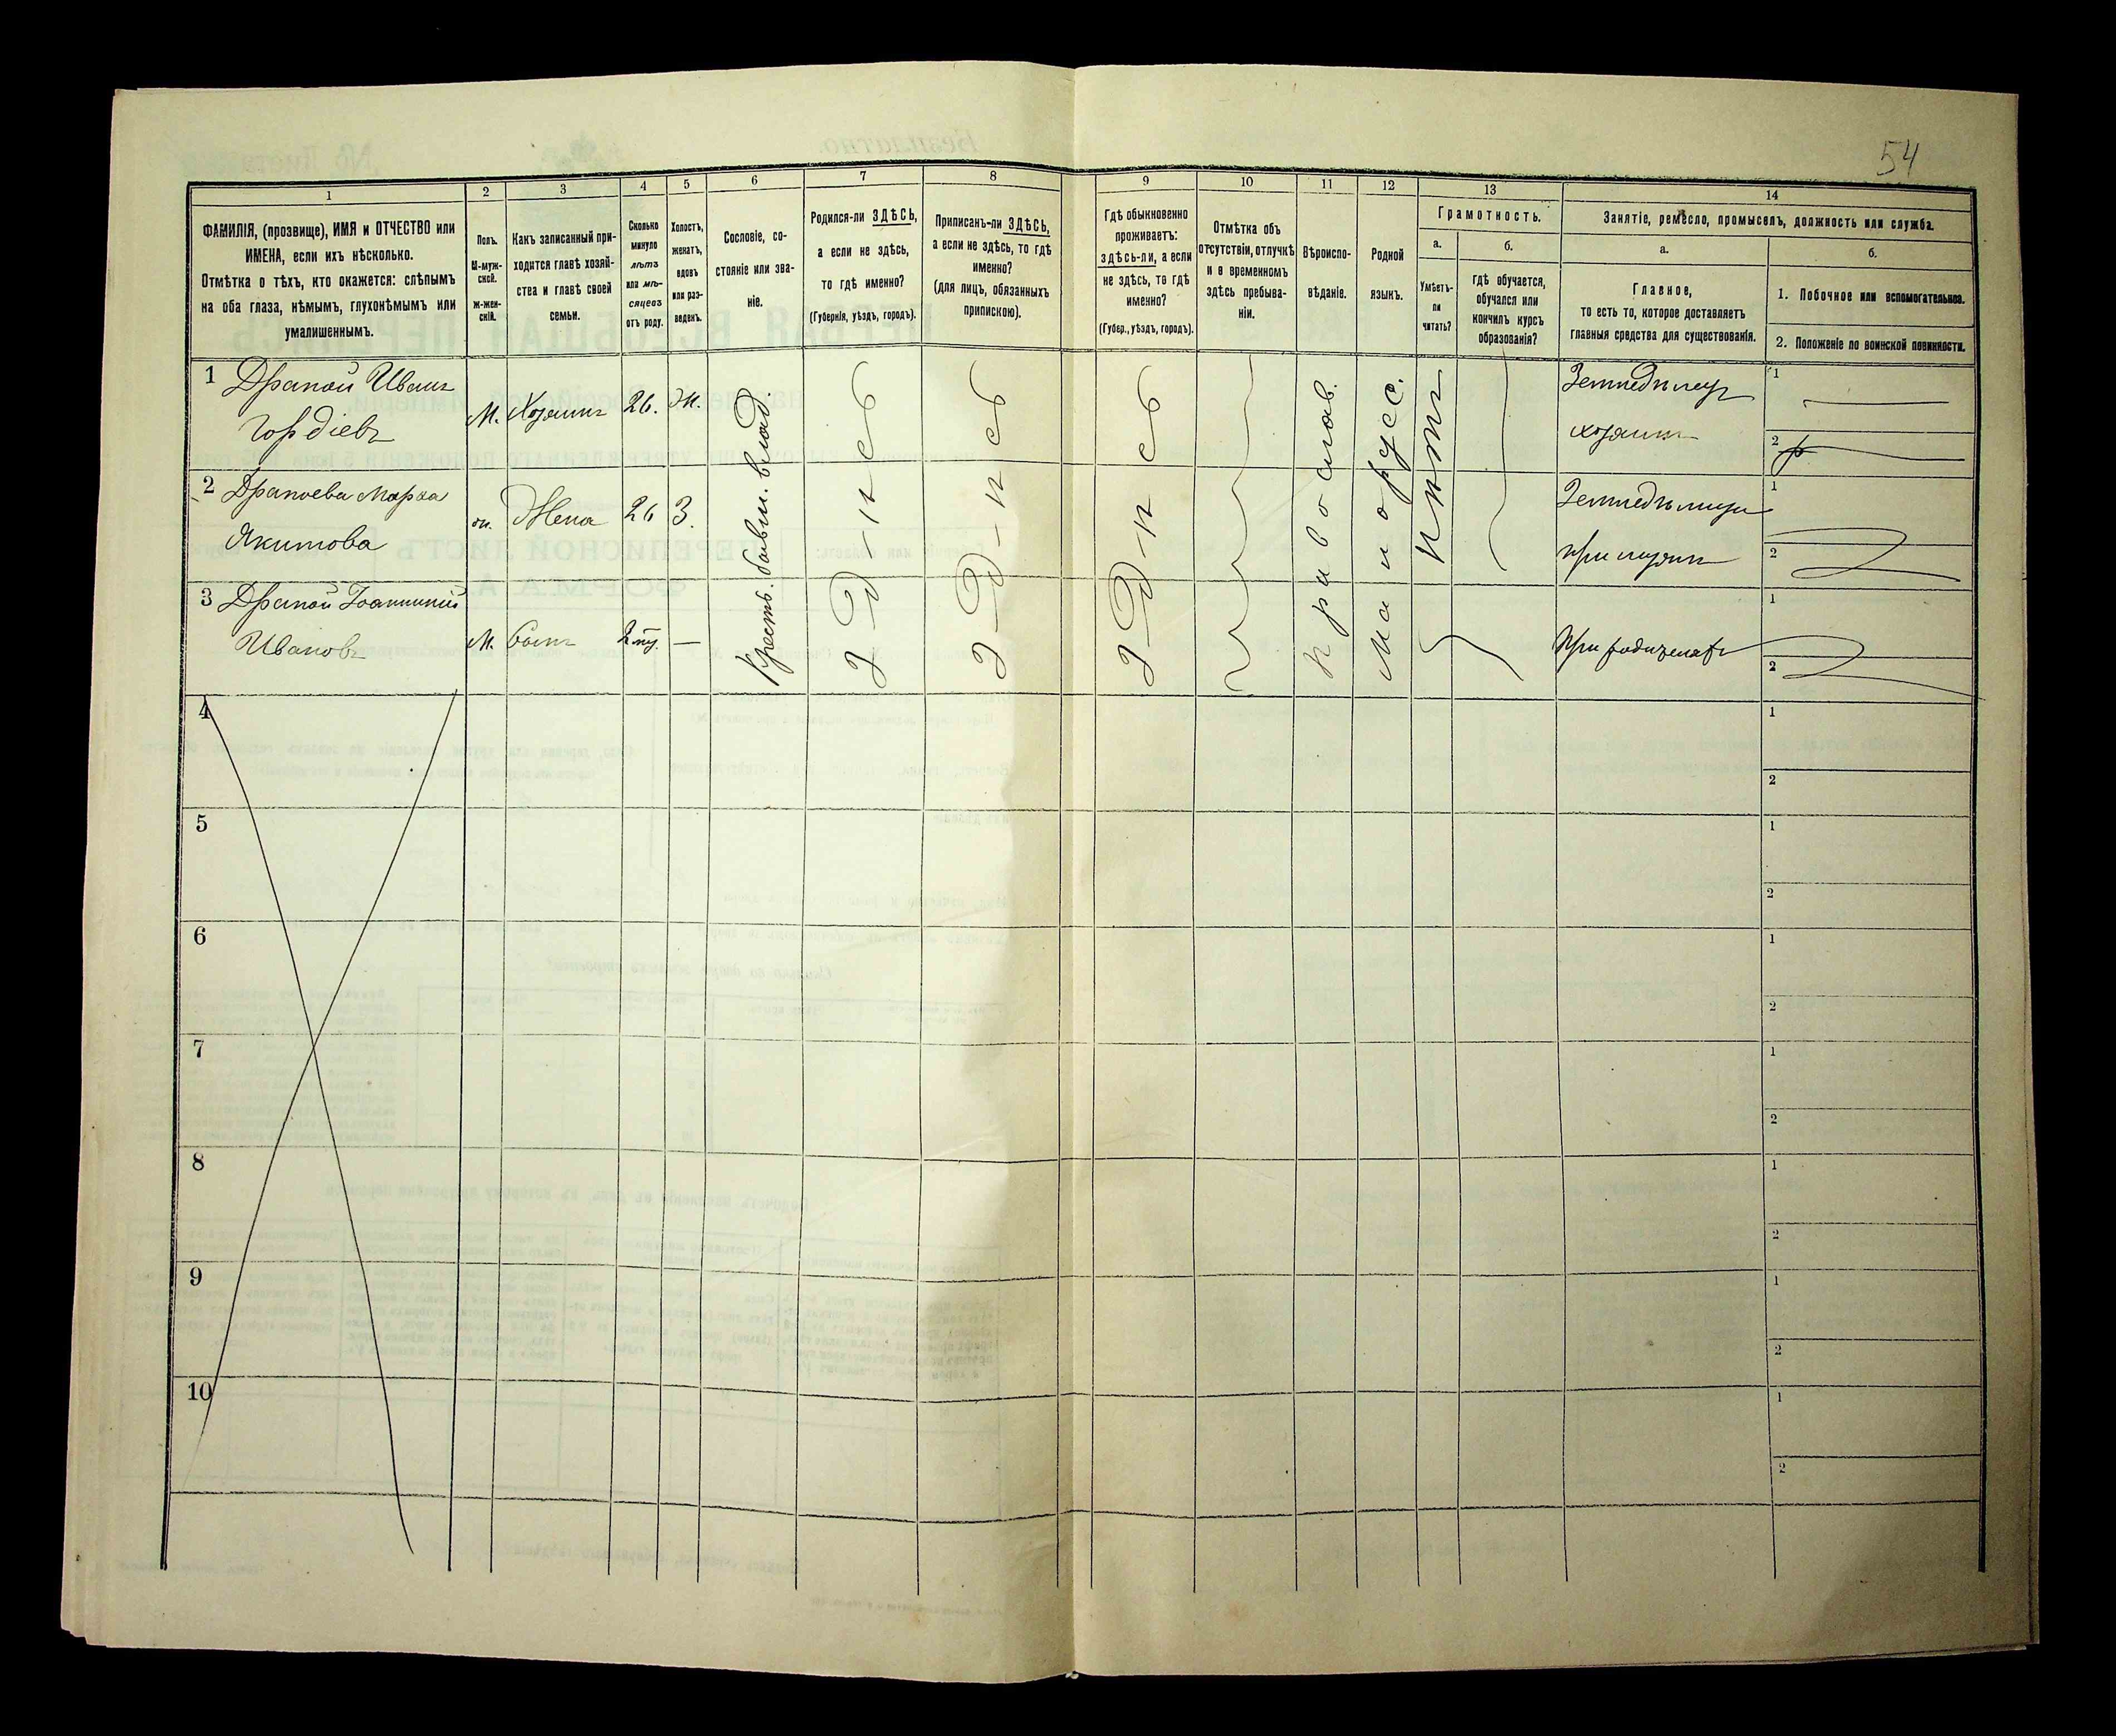 54
1
2
3
4
5
6
7
8
9
10
11
12
13
14
ФАМИЛІЯ, (прозвище), ИМЯ и ОТЧЕСТВО или
ИМЕНА, если ихъ нѣсколько.
Отмѣтка о тѣхъ, кто окажется: слѣпымъ
на оба глаза, нѣмымъ, глухонѣмымъ или
умалишеннымъ.
Полъ.
М-муж-
ской.
ж-жен-
скій.
Какъ записанный при-
ходится главѣ хозяй-
ства и главѣ своей
семьи.
Сколько
минуло
лѣтъ
или мѣ-
сяцевъ
отъ роду.
Холостъ,
женатъ,
вдовъ
или раз-
веденъ.
Сословіе, со-
стояніе или зва-
ніе.
Родился-ли ЗДѢСЬ,
а если не здѣсь,
то гдѣ именно?
(Губернія, уѣздъ, городъ).
Приписанъ-ли ЗДѢСЬ,
а если не здѣсь, то гдѣ
именно?
(для лицъ, обязанныхъ
припискою).
Гдѣ обыкновенно
проживаетъ:
здѣсь-ли, а если
не здѣсь, то гдѣ
именно?
(Губер., уѣздъ, городъ).
Отмѣтка объ
отсутствіи, отлучкѣ
и о временномъ
здѣсь пребыва-
ніи.
Вѣроиспо-
вѣданіе.
Родной
языкъ.
Грамотность.
а.
Умѣетъ-
ли
читать?
б.
Гдѣ обучается,
обучался или
кончилъ курсъ
образованія?
Занятіе, ремесло, промыселъ, должность или служба.
а.
Главное,
то есть то, которое доставляетъ
главныя средства для существованія.
б.
1. Побочное или вспомогательное.
2. Положеніе по воинской повинности.
1 Драпой Иванъ
Гордіевъ
М. Хозяинъ 26. Ж.
Крестъ. бывш. влад.
здѣсь
здѣсь
здѣсь
Православ.
Малорусс.
нѣтъ
Земледѣлецъ
хозяинъ
1
2
2 Драпоева Марѳа
Якимова
ж. Жена 26 З.
Земледѣлица
при мужѣ
1
2
3 Драпой Іоанникій
Ивановъ
М. Сынъ —
при родителяхъ
1
2
4
1
2
5
1
2
6
1
2
7
1
2
8
1
2
9
1
2
10
1
2